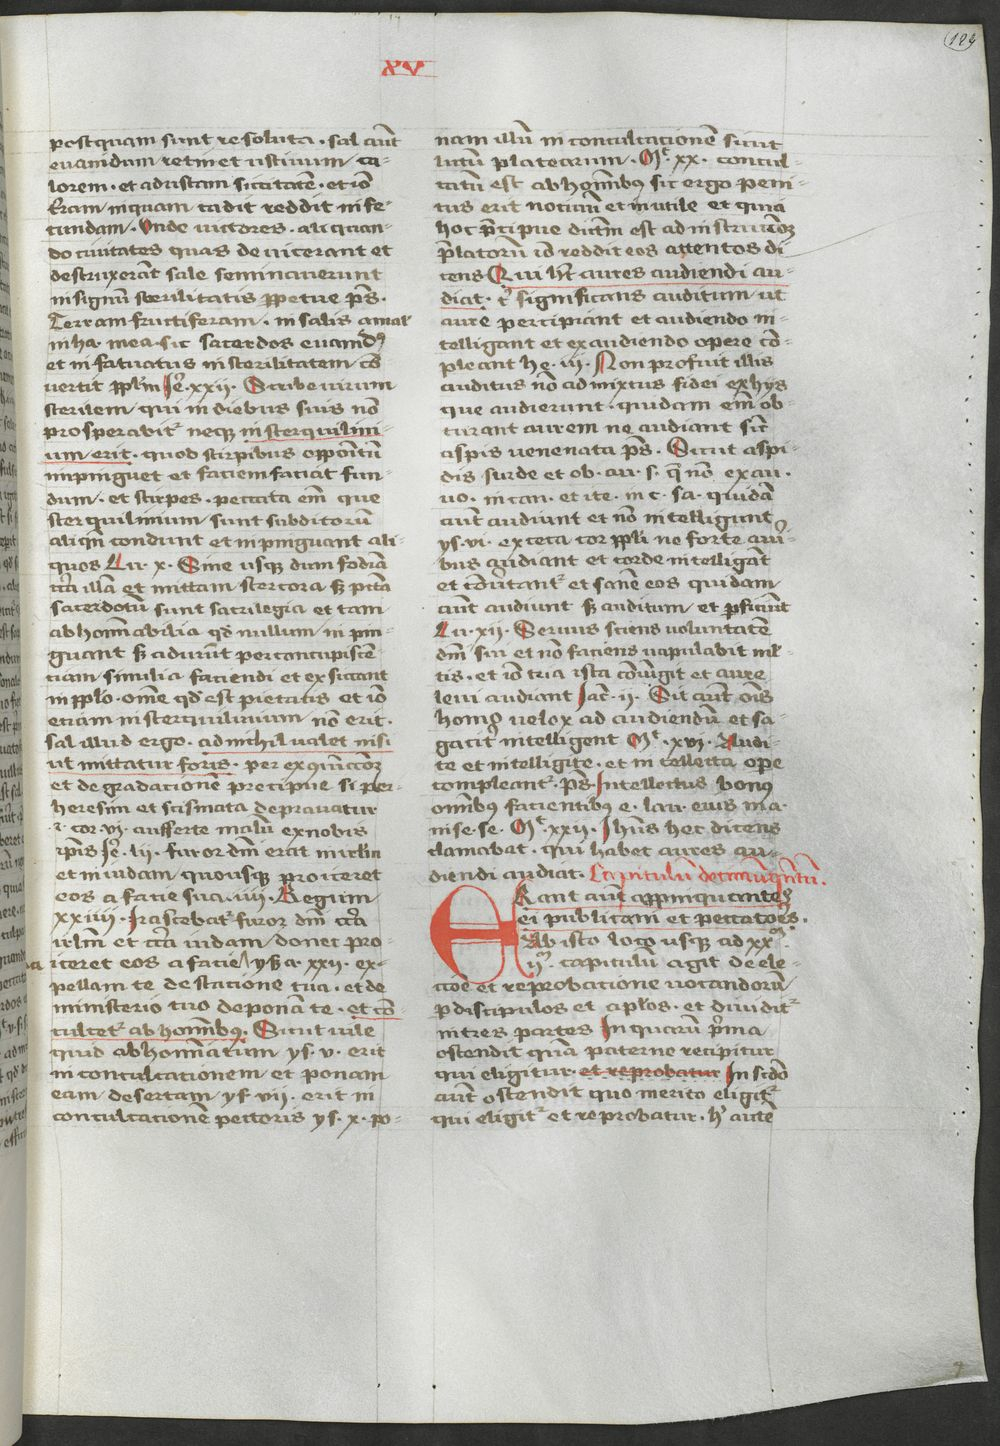 189
XV
postquam sunt resoluta. sal aut̄
euanidum retinet ustiuum ca-
lorem. et adustam siccitatē. et iō
terram in quam cadit reddit infe-
cundam. Vnde uictores. aliquan-
do ciuitates quas deuicerant et
destruxerāt sale seminauerunt
in signū sterilitatis ꝑpetue p̄s.
Terram fructiferam. in salis amar̄
in ha. mea. sic sacerdos euanidꝰ
et infatuatus in sterilitatem cō-
uertit ppl̄m Je͛. xxii. Scribe uirum
sterilem qui in diebus suis nō
prosperabit͛ neqꝫ in sterquilini-
um erit. quod stirpibus appositū
inpinguet et faciem faciat fun-
dum. et stirpes. peccata em̄ que
sterquilinium sunt subditorū
aliqn̄ condiunt et inpinguant ali-
quos Lu. x. Sine usqꝫ dum fodiā
cͬca illā et mittam stercora sꝫ pccā
sacerdotū sunt sacrilegia et tam
abhominabilia qd̄ nullum inpin-
guant sꝫ adurūt per concupiscē-
ciam similia faciendi et exsiccant
in pplo. om̄e qd̄ est pietatis et iō
etiam in sterquilinium nō erit.
sal illud ergo. ad nichil ualet nisi
ut mittatur foris. per
et degradacionem precipue si per
heresim et scismata deprauatur
i. cor. vi. aufferte malū ex nobis
ipīs Je͛. lii. furor dn̄i erat in irl̄m
et in iudam quousqꝫ proiceret
eos a facie sua. iiii. Regum
xxiiii. Irascebat͛ furor dn̄i cͬca
irl̄m et cͬca iudam donec pro-
iceret eos a facie ysa. xxii. ex-
pellam te de stacione tua. et de
ministerio tuo deponā te. et cō-
culcet͛ ab hom̄ibꝰ. Sicut uile
quid abhom̄atum ys. v. erit
in conculcationem et ponam
eam desertam ys. vii. erit in
conculcationē pecoris ys. x. po-
nam illū in conculcationē sicut
lutū platearum. Mͭ. xx. concul-
catū est ab hom̄ibꝰ sic ergo peni-
tus erit nociuū et inutile et quia
hoc p͛cipue dictm̄ est ad instructōꝫ
p͛latorū iō reddit eos attentos di-
cens Qui hn̄t aures audiendi au-
diat. significans auditum ut
aure percipiant et audiendo in-
telligant et exaudiendo opere cō-
pleant he. iii. Non profuit illis
auditus nō admixtus fidei ex hys
que audierunt. quidam em̄ ob-
turant aurem ne audiant sic̄
aspis uenenata p̄s. Sicut aspi-
dis surde et ob. au. s. q̄ nō exau.
uo. incan. et ite. in c. sa. quidā
aut̄ audiunt et nō intelligunt
ys. vi. exceca cor ppli ne forte au͛i-
bus audiant et corde intelligāt
et cōu͛tant͛ et sanē eos quidam
aut̄ audiunt sꝫ auditum et ꝑficiūt
Lu. xii. Seruus sciens uoluntatē
dn̄i sui et nō faciens uapulabit ml̄-
tis. et iō tria ista cōiūgit et aure
leui audiant Jac̄. ii. Sit aut̄ oīs
homo uelox ad audiendū et sa-
gacit͛ intelligent Mͭ. xvi. Audi-
te et intelligite. et intellecta ope
compleant͛. p̄s. Intellectus bonꝰ
om̄ibꝰ facientibꝰ e. lau. eius ma.
in se. se. Mͭ. xxii. Ihūs hec dicens
clamabat. qui habet aures au-
diendi audiat. Capitulū decimūqͥntū.
Erant aut̄ appinquantes
ei publicani et peccatores.
Ab isto loco usqꝫ ad xx
iiͫ. capitulū agit de ele-
ctōe et reprobatione uocandorū
ꝑ discipulos et aplos. et diuidit͛
in tres partes In quarū p͛ma
ostendit quā paterne recipitur
qui eligitur. et reprobatur In scdō
aut̄ ostendit quo merito eligit͛
qui eligit͛ et reprobatur. h͛ autē